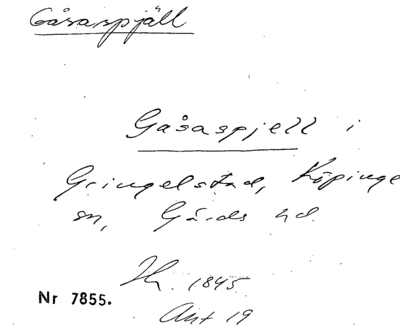 Gåsaspjäll
Gåsaspjell i
Gringelstad, Köpinge
sn, Gärds hd.
Th. 1845
Nr 7855.
Akt 19